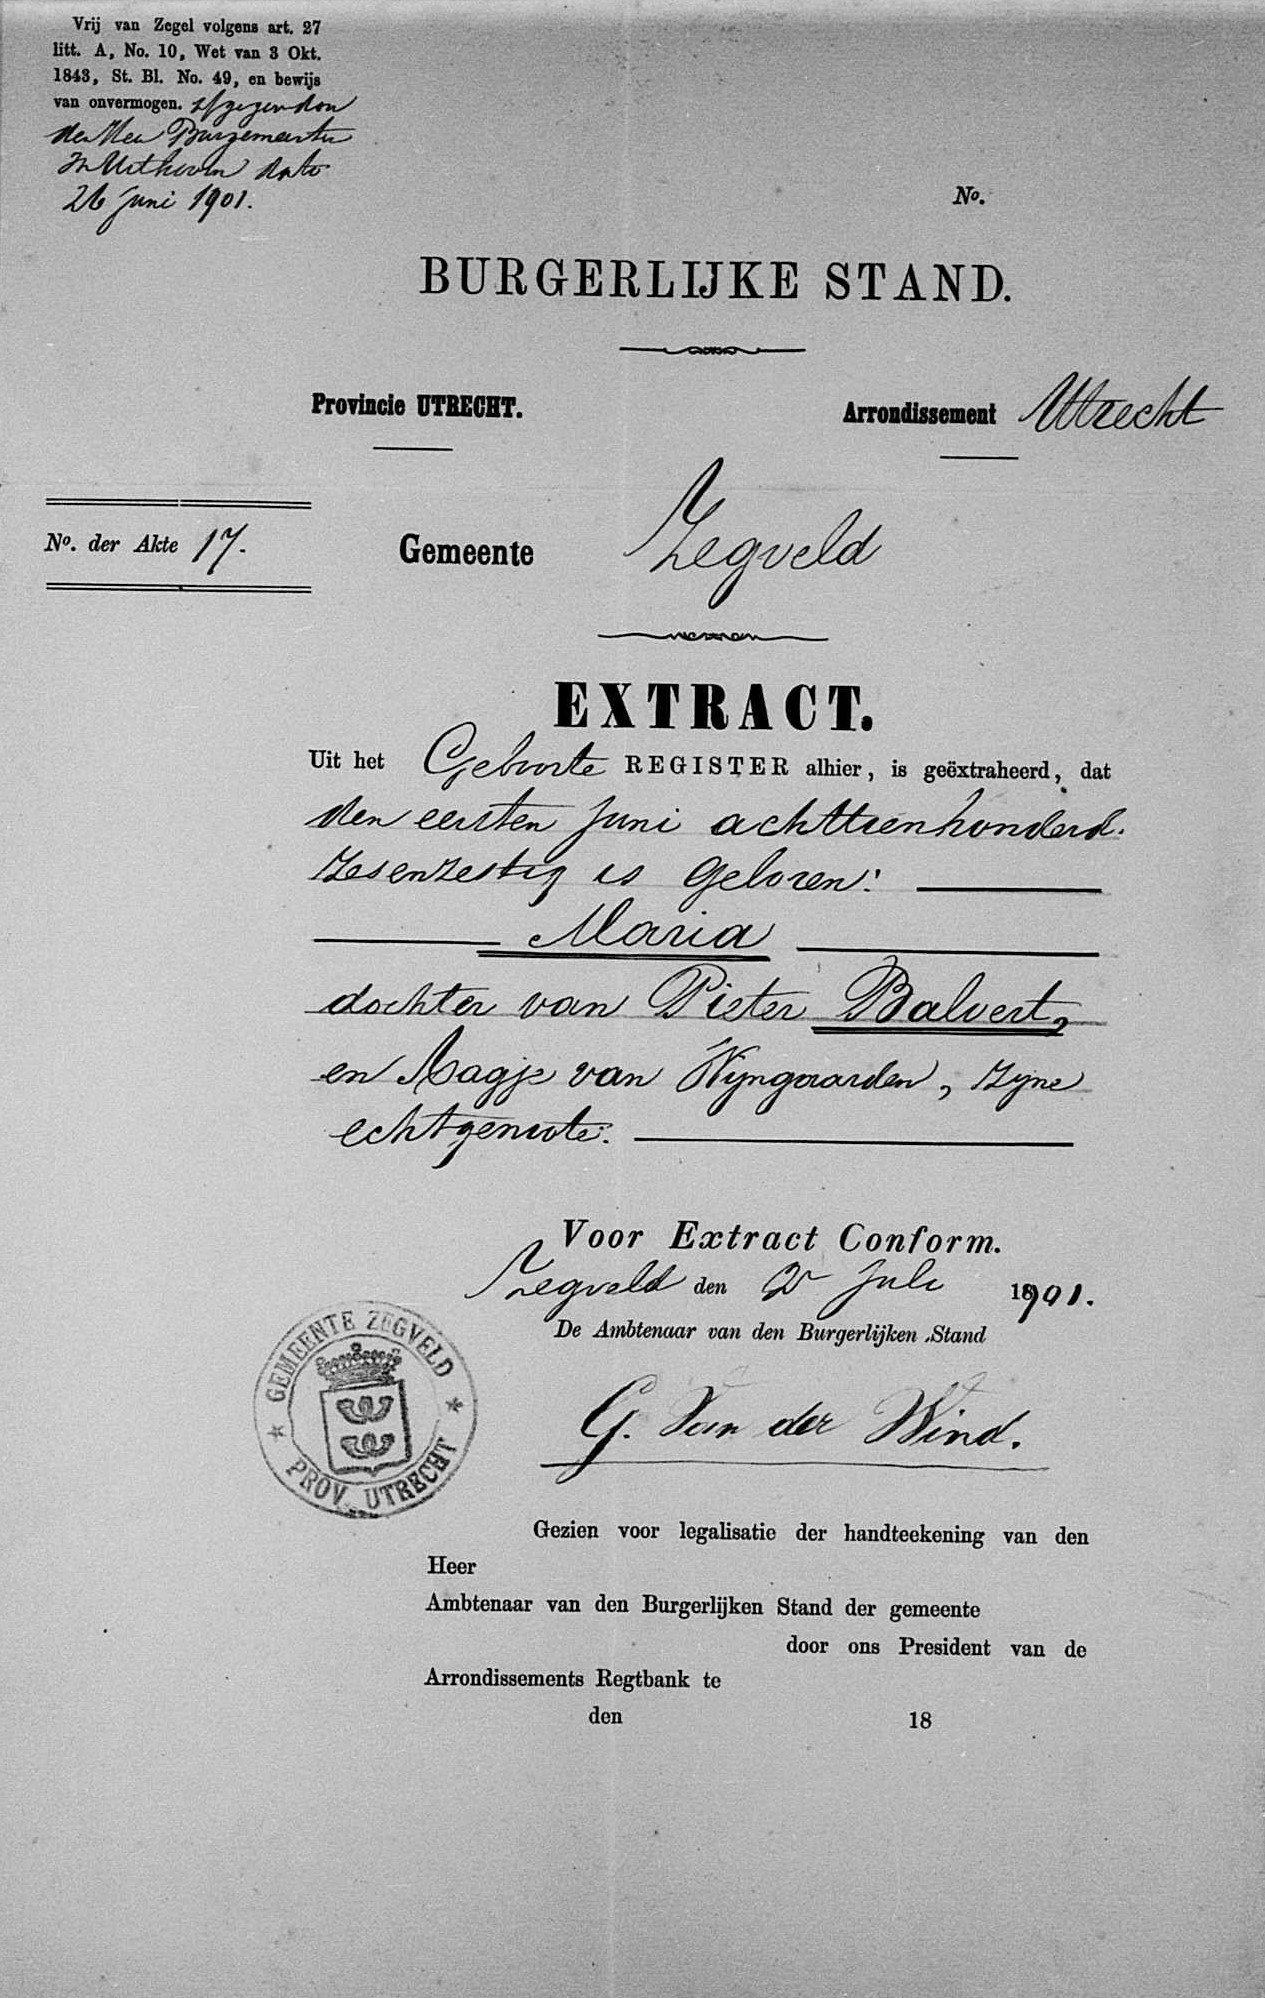 Vrij van Zegel volgens art. 27
litt. A, No. 10, Wet van 3 Okt.
1843, St. Bl. No. 49, en bewijs
van onvermogen. afgegeven door
den Heer Burgemeester
dato
26 Juni 1901.
No.
BURGERLIJKE STAND.
Provincie UTRECHT.
Arrondissement Uttrecht
No. der Akte 17.
Gemeente Zegveld
EXTRACT.
Uit het Geboorte REGISTER alhier, is geëxtraheerd, dat
den eersten Juni achttienhonderd.
zesenzestig is geboren:
Maria
dochter van Pieter Balvert,
en Aagje van Wijngaarden, zijne
echtgenoote.
Voor Extract Conform.
Zegveld den 2n Juli 1901.
De Ambtenaar van den Burgerlijken Stand
GEMEENTE ZEGVELD
PROV. UTRECHT
G. Van der Wind.
Gezien voor legalisatie der handteekening van den
Heer
Ambtenaar van den Burgerlijken Stand der gemeente
door ons President van de
Arrondissements Regtbank te
den 18